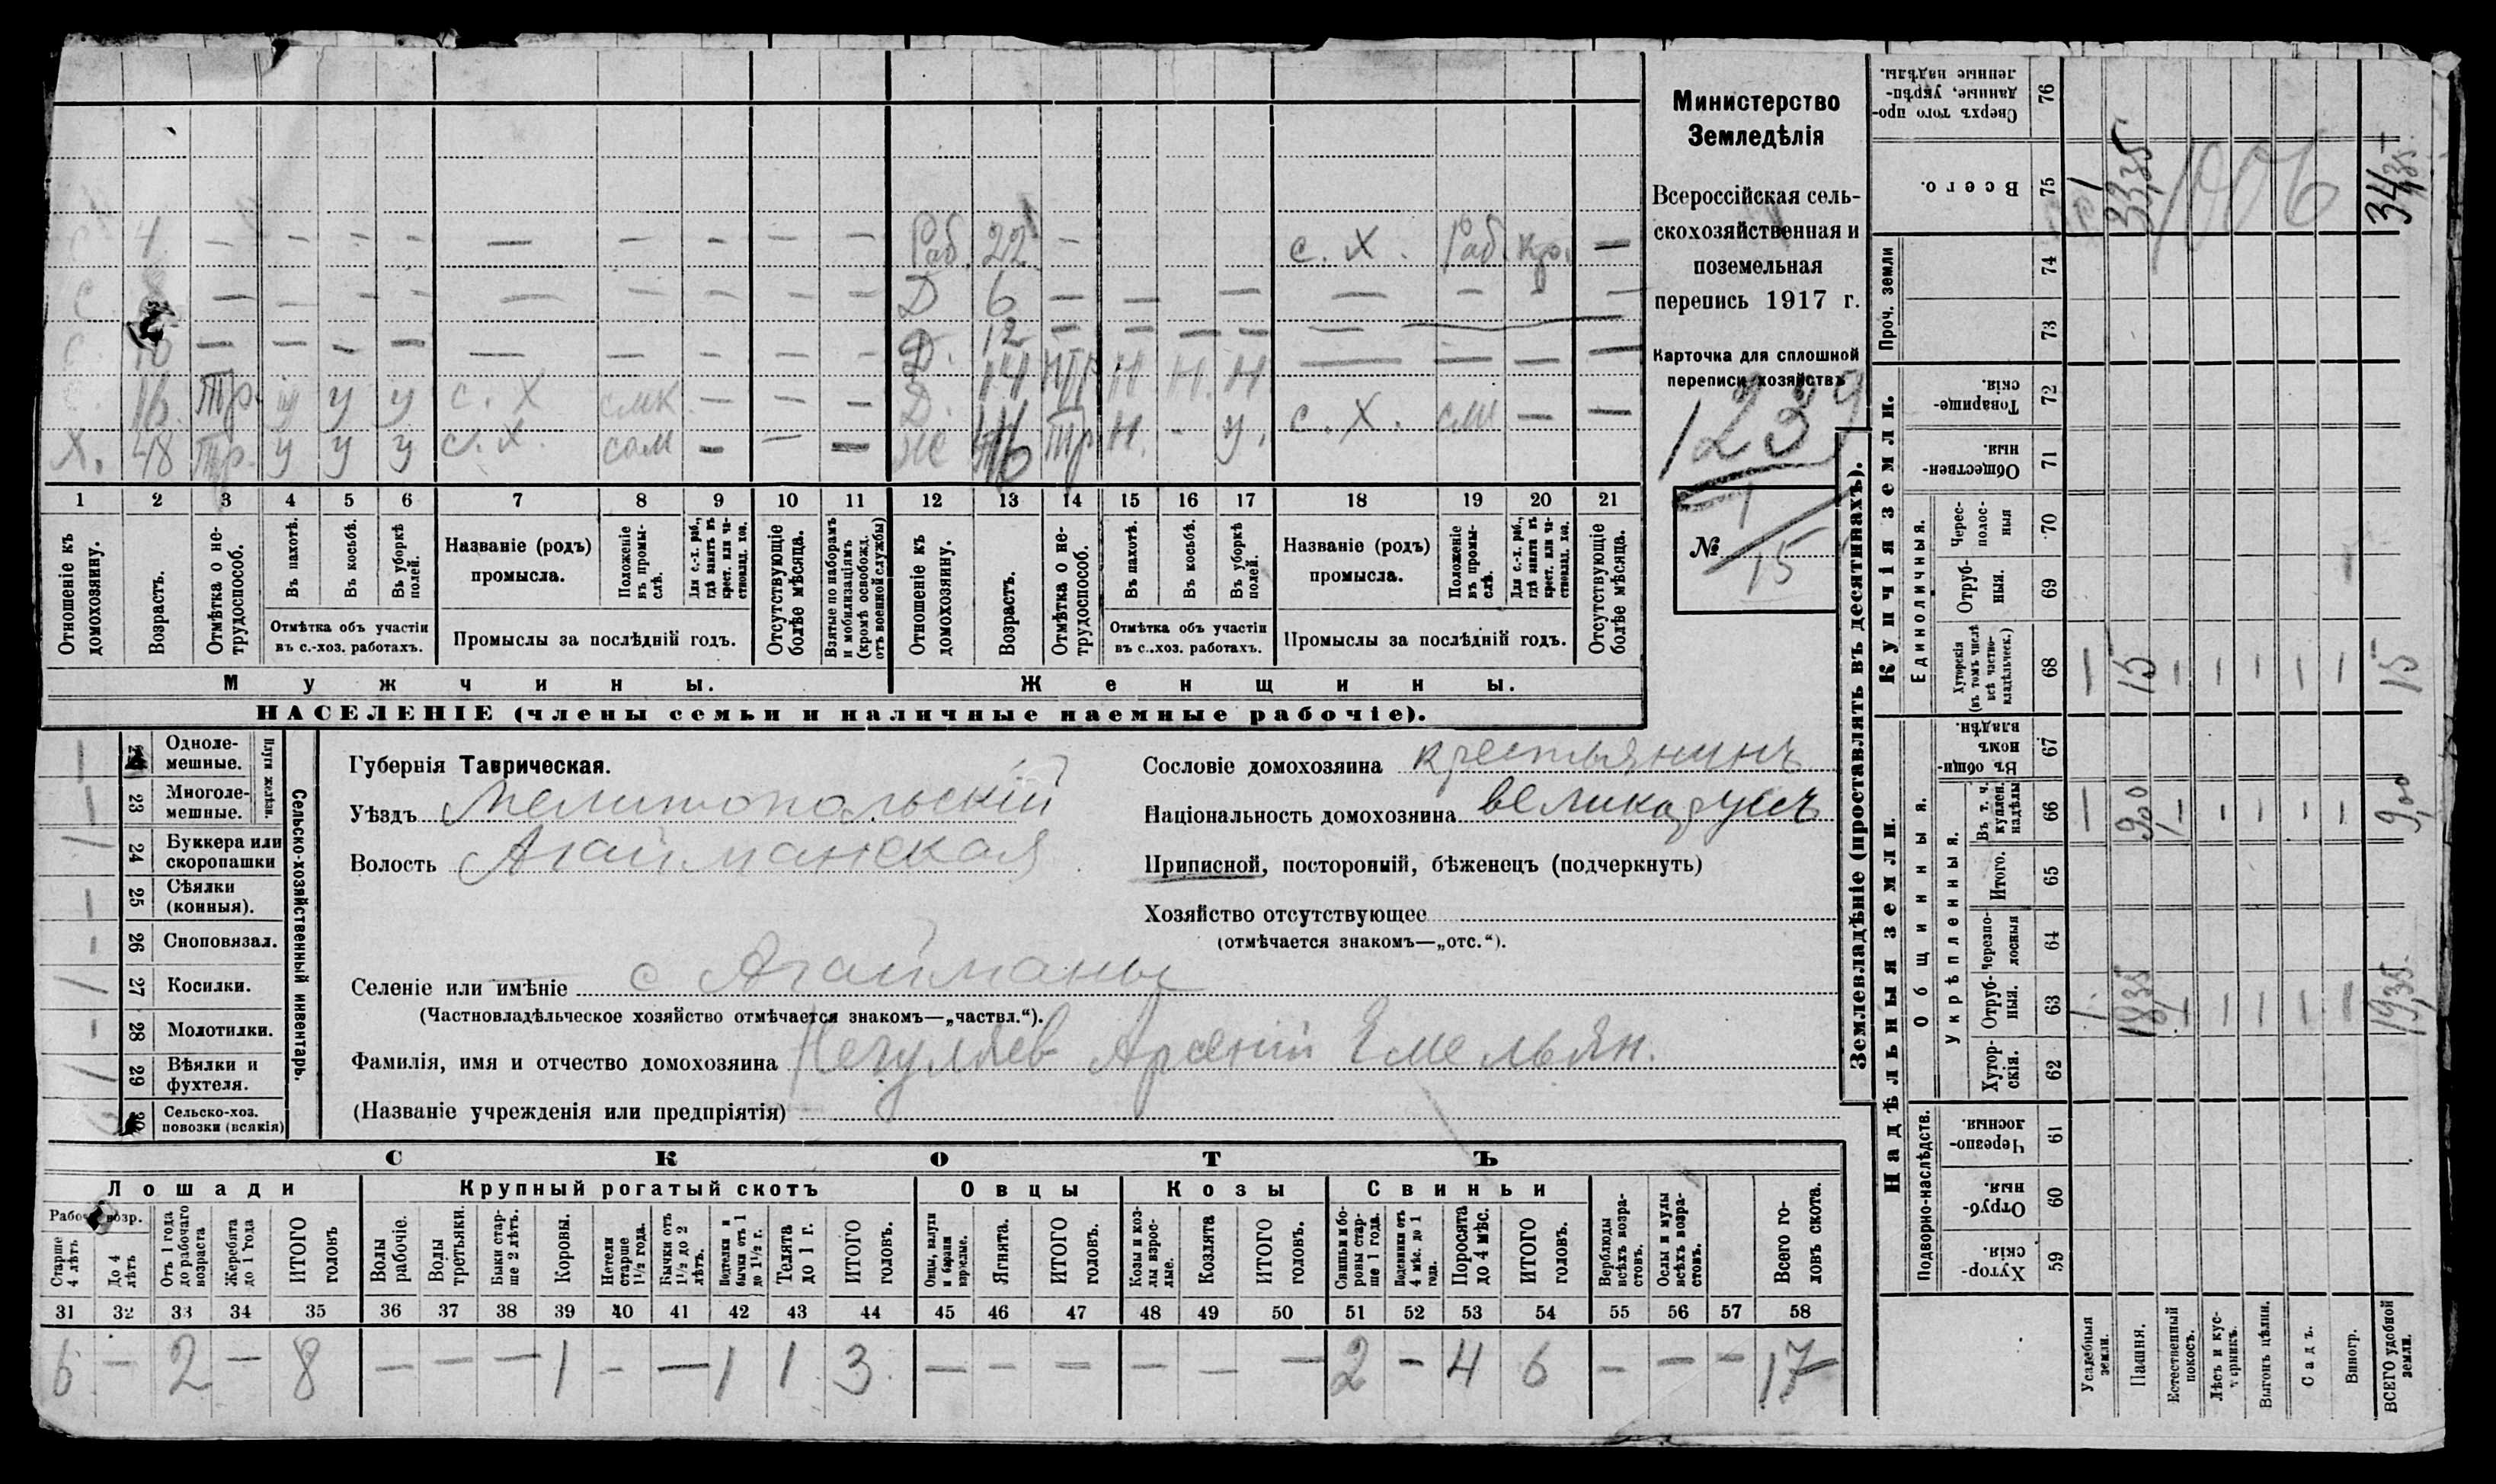 Министерство
Земледѣлія
Всероссійская сель-
скохозяйственная и
поземельная
перепись 1917 г.
Карточка для сплошной
переписи хозяйствъ
1239
№ 1/15
С 4 — — — — — — — — — Раб. 22 — с. х. Раб. кр. —
С — — — — — — — — — Д 6 — — — — — — —
С. 10 — — — — — — — — — Д. 12 — — — — —
16. Тр. У У У С. Х СМК — — — Д. 14 НТР Н Н. Н — — — —
Х. 48 Тр. У У У С. Х. сам — — — Ж 46 Тр Н. - У. С. Х. — —
1 2 3 4 5 6 7 8 9 10 11 12 13 14 15 16 17 18 19 20 21
Отношеніе къ домохозяину.
Возрастъ.
Отмѣтка о не-трудоспособ.
Въ пахотѣ.
Въ косьбѣ.
Въ уборкѣ полей.
Отмѣтка объ участіи
въ с.-хоз. работахъ.
Названіе (родъ)
промысла.
Положеніе въ промы-слѣ.
Для с.-х. раб., гдѣ занятъ въ крест. или ча-стновлад. хоз.
Промыслы за послѣдній годъ.
Отсутствующіе болѣе мѣсяца.
Взятые по наборамъ и мобилизаціямъ (кромѣ освобожд. отъ военной службы)
Отношеніе къ домохозяину.
Возрастъ.
Отмѣтка о не-трудоспособ.
Въ пахотѣ.
Въ косьбѣ.
Въ уборкѣ полей.
Отмѣтка объ участіи
въ с..хоз. работахъ.
Названіе (родъ)
промысла.
Положеніе въ промы-слѣ.
Для с.-х. раб., гдѣ занята въ крест. или ча-стновлад. хоз.
Промыслы за послѣдній годъ.
Отсутствующіе болѣе мѣсяца.
Мужчины.
Женщины.
НАСЕЛЕНІЕ (члены семьи и наличные наемные рабочіе).
Одноле-мешные.
23 Многоле-мешные.
Плуги желѣзн.
24 Буккера или скоропашки
25 Сѣялки (конныя).
26 Сноповязал.
27 Косилки.
28 Молотилки.
29 Вѣялки и фухтеля.
30 Сельско-хоз. повозки (всякія)
Сельско-хозяйственный инвентарь.
Губернія Таврическая.
Уѣздъ Мелитопольскій
Волость Агайманская
Сословіе домохозяина крестьянинъ
Національность домохозяина великорусъ
Приписной, посторонній, бѣженецъ (подчеркнуть)
Хозяйство отсутствующее
(отмѣчается знакомъ—„отс.“).
Селеніе или имѣніе с Агайманы
(Частновладѣльческое хозяйство отмѣчается знакомъ—„частвл.“).
Фамилія, имя и отчество домохозяина Нечуляев Арсеній Емельян.
(Названіе учрежденія или предпріятія)
СКОТЪ
Лошади
Крупный рогатый скотъ
Овцы
Козы
Свиньи
Рабоч. возр.
Старше 4 лѣтъ
До 4 лѣтъ
Отъ 1 года до рабочаго возраста
Жеребята до 1 года
ИТОГО головъ
Волы рабочіе.
Волы третьяки.
Быки стар-ше 2 лѣтъ.
Коровы.
Нетели старше 1½ года.
Бычки отъ 1½ до 2 лѣтъ.
Подтелки и бычки отъ 1 до 1½ г.
Телята до 1 г.
ИТОГО головъ.
Овцы, валухи и бараны взрослые.
Ягнята.
ИТОГО головъ.
Козы и коз-лы взрос-лые.
Козлята
ИТОГО головъ.
Свиньи и бо-ровы стар-ше 1 года.
Подсвинки отъ 4 мѣс. до 1 года.
Поросята до 4 мѣс.
ИТОГО головъ.
Верблюды всѣхъ возра-стовъ.
Ослы и мулы всѣхъ возра-стовъ.
Всего го-ловъ скота.
31 32 33 34 35 36 37 38 39 40 41 42 43 44 45 46 47 48 49 50 51 52 53 54 55 56 57 58
6 — 2 — 8 — — — 1 - — 1 1 3 — — — — — — 2 - 4 6 — — — 17
Землевладѣніе (проставлять въ десятинахъ).
Купчія земли.
Надѣльныя земли.
Проч. земли
Сверхъ того про-данные, укрѣп-ленные надѣлы. 76
Всего. 75 33,35 34,35
74
73
Товарище-скія. 72
Обществен-ныя. 71
Единоличныя.
Черес-полос-ныя 70
Отруб-ныя. 69
Хуторскія (въ томъ числѣ всѣ частно-владѣльческ.) 68 — 15 — — — — — 15
Общинныя.
Въ общи-номъ владѣн. 67
Укрѣпленныя.
Въ т. ч. куплен. надѣлы 66 — 9,00 — — — — — 9,00
Итого. 65
Черезпо-лосныя 64
Отруб-ныя. 63 1 18,35 — — — — — 19,35
Хутор-скія. 62
Подворно-наслѣдств.
Черезпо-лосныя. 61
Отруб-ныя. 60
Хутор-скія. 59
Усадебныя земли.
Пашня.
Естественный покосъ.
Лѣсъ и кус-тарникъ.
Выгонъ цѣлин.
Садъ.
Виногр.
ВСЕГО удобной земли.